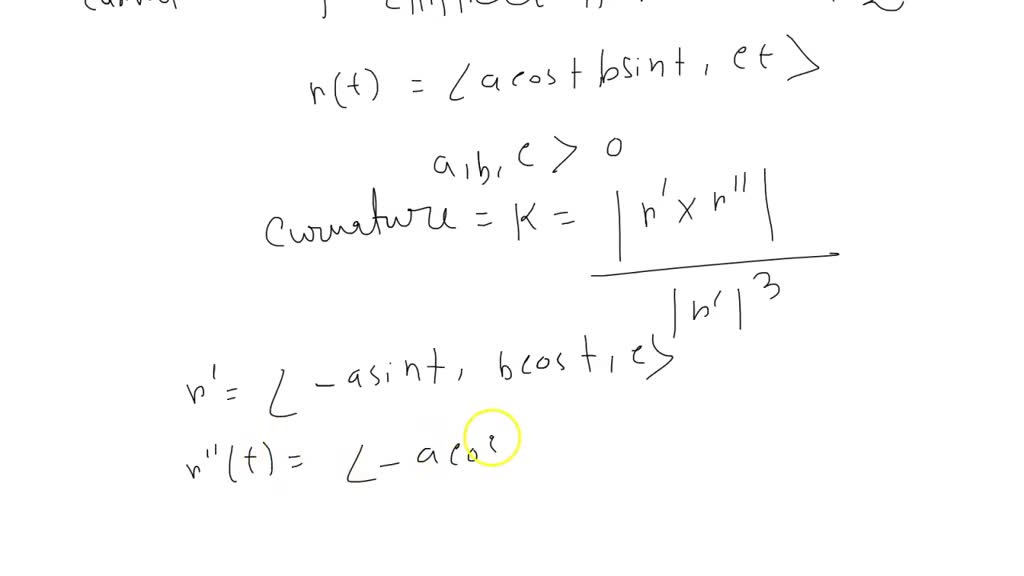 r(t) = ⟨acost bsint, ct⟩
a,b, c > 0
Curvature = K = |r' x r''|
|r'|3
r' = ⟨-asint, bcost, c⟩
r''(t) = ⟨-acos